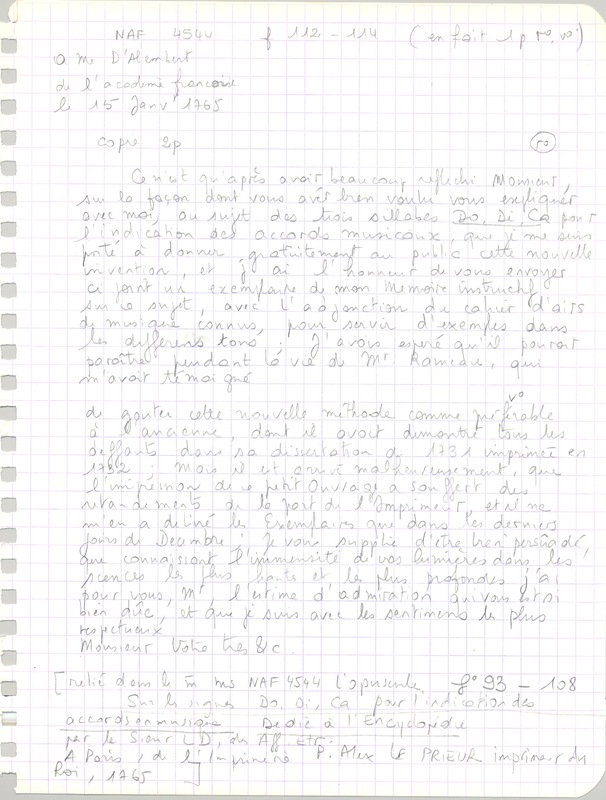 NAF 4544 f 112 - 114 (en fait 1 p r°. v°)
a Mr D'Alembert
de l'academie francoise
le 15 Janv' 1765
copie 2p
r°
Ce n'est qu'après avoir beaucoup reflechi Monsieur,
sur la façon dont vous avés bien voulu vous expliquer
avec moi, au sujet des trois sillabes Do, Di, Ca pour
l'indication des accords musicaux, que je me suis
porté à donner gratuitement au public cette nouvelle
invention, et j'ai l'honneur de vous envoyer
ci joint un exemplaire de mon Memoire instructif
sur ce sujet, avec l'adjonction du cahier d'airs
de musique connus, pour servir d'exemples dans
les differents tons : J'avois esperé qu'il pourroit
paraître pendant la vie de Mr Rameau, qui
m'avait témoigné
v°
de gouter cette nouvelle méthode comme préférable
à l'ancienne, dont il avoit demontré tous les
deffauts dans sa dissertation de 1731 imprimée en
1732 ; Mais il est arrivé malheureusement, que
l'impression de ce petit Ouvrage a souffert des
retardements de la part de l'Imprimeur, et il ne
m'en a delivré les Exemplaires que dans les derniers
jours de Decembre ; Je vous supplie d'être bien persuadé,
que connaissant l'immensité de vos lumières dans les
sciences les plus hautes et les plus profondes j'ai
pour vous, Mr, l'estime d'admiration qui vous est si
bien düe, et que je suis avec les sentimens les plus
respectueux
Monsieur Votre tres &c.
[relié dans le m ms NAF 4544 l'opuscule f° 93 - 108
Sur les signes Do, Di, Ca pour l'indication des
accords en musique Dedié à l'Encyclopédie
par le Sieur L D, des Aff Etr.
A Paris, de l'Imprimerie P. Alex LE PRIEUR imprimeur du
Roi, 1765 ]